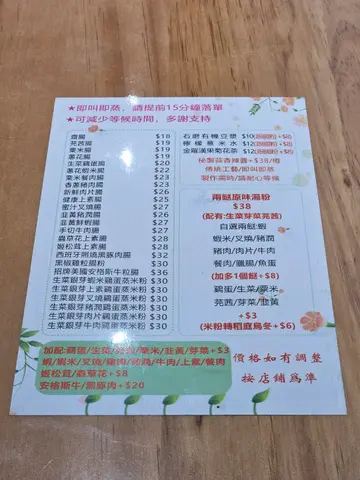 ★即叫即蒸，請提前15分鐘落單
★可減少等候時間，多謝支持
齋腸 $18
芫茜腸 $19
粟米腸 $19
蔥花腸 $19
生菜雞蛋腸 $20
蔥花蝦米腸 $22
粟米餐肉腸 $21
香蔥豬肉腸 $23
新鮮肉片腸 $26
健康上素腸 $25
蜜汁叉燒腸 $27
韭黃豬潤腸 $26
韭黃鮮蝦腸 $27
手切牛肉腸 $27
蟲草花上素腸 $28
姬松茸上素腸 $28
西班牙 $36
黑椒雞粒腸粉 $30
招牌美國安格斯牛粒腸 $36
生菜銀芽鮮蝦雞蛋蒸米粉 $30
生菜銀芽上素雞蛋蒸米粉 $30
生菜銀芽叉燒雞蛋蒸米粉 $30
生菜銀芽豬潤雞蛋蒸米粉 $30
生菜銀芽肉片雞蛋蒸米粉 $30
生菜銀芽牛肉雞蛋蒸米粉 $30
石磨有機豆漿 $10
檸檬薏米水 $12
金羅漢果菊花茶 $12
秘製蒜香辣醬+$38/樽
傳統工藝/即叫即蒸
製作需時/請耐心等候
兩餸原味湯粉
$38
(配有:生菜芽菜芫茜)
自選兩餸:蝦
蝦米/叉燒/豬潤
豬肉/肉片/牛肉
餐肉/臘腸/魚蛋
(加多1個餸+$8)
雞蛋/生菜/粟米
芫茜/芽菜/韭黃
+$3
(米粉轉稻庭烏冬+$6)
加配:雞蛋/生菜/芫茜/粟米/韭黃/芽菜+$3
蝦/蝦米/叉燒/豬肉/豬潤/牛肉/上素/餐肉
姬松茸/蟲草花+$8
安格斯牛/黑豚肉+$20
價格如有調整
按店舖為準